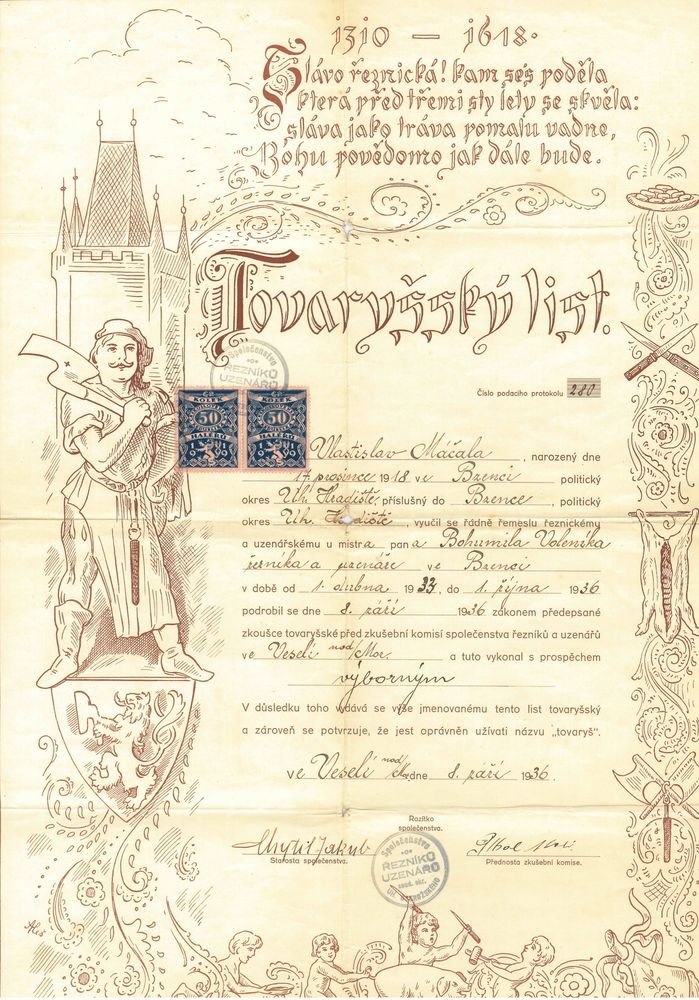 1310 — 1618.
Slávo řeznická! kam ses poděla
která před třemi sty lety se skvěla:
sláva jako tráva pomalu vadne,
Bohu povědomo jak dále bude.
Tovaryšský list.
Společenstvo
ŘEZNÍKŮ
UZENÁŘŮ
Číslo podacího protokolu 280
KOLEK KOLEK
50 50
HALÉŘŮ HALÉŘŮ
Vlastislav Máčala, narozený dne
17. prosince 1918 ve Bzenci politický
okres Uh. Hradiště, příslušný do Bzence, politický
okres Uh. Hradiště, vyučil se řádně řemeslu řeznickému
a uzenářskému u mistra pana Bohumila Voleníka
řezníka a uzenáře ve Bzenci
v době od 1. dubna 1933, do 1. října 1936
podrobil se dne 8. září 1936 zákonem předepsané
zkoušce tovaryšské před zkušební komisí společenstva řezníků a uzenářů
ve Veselí nad Mor. a tuto vykonal s prospěchem
výborným
V důsledku toho vydává se výše jmenovanému tento list tovaryšský
a zároveň se potvrzuje, že jest oprávněn užívati názvu „tovaryš".
ve Veselí nad M. dne 8. září 1936.
Razítko
společenstva.
Chytil Jakub
Starosta společenstva.
Přednosta zkušební komise.
Společenstvo
ŘEZNÍKŮ
UZENÁŘŮ
soud. okr.
Aleš